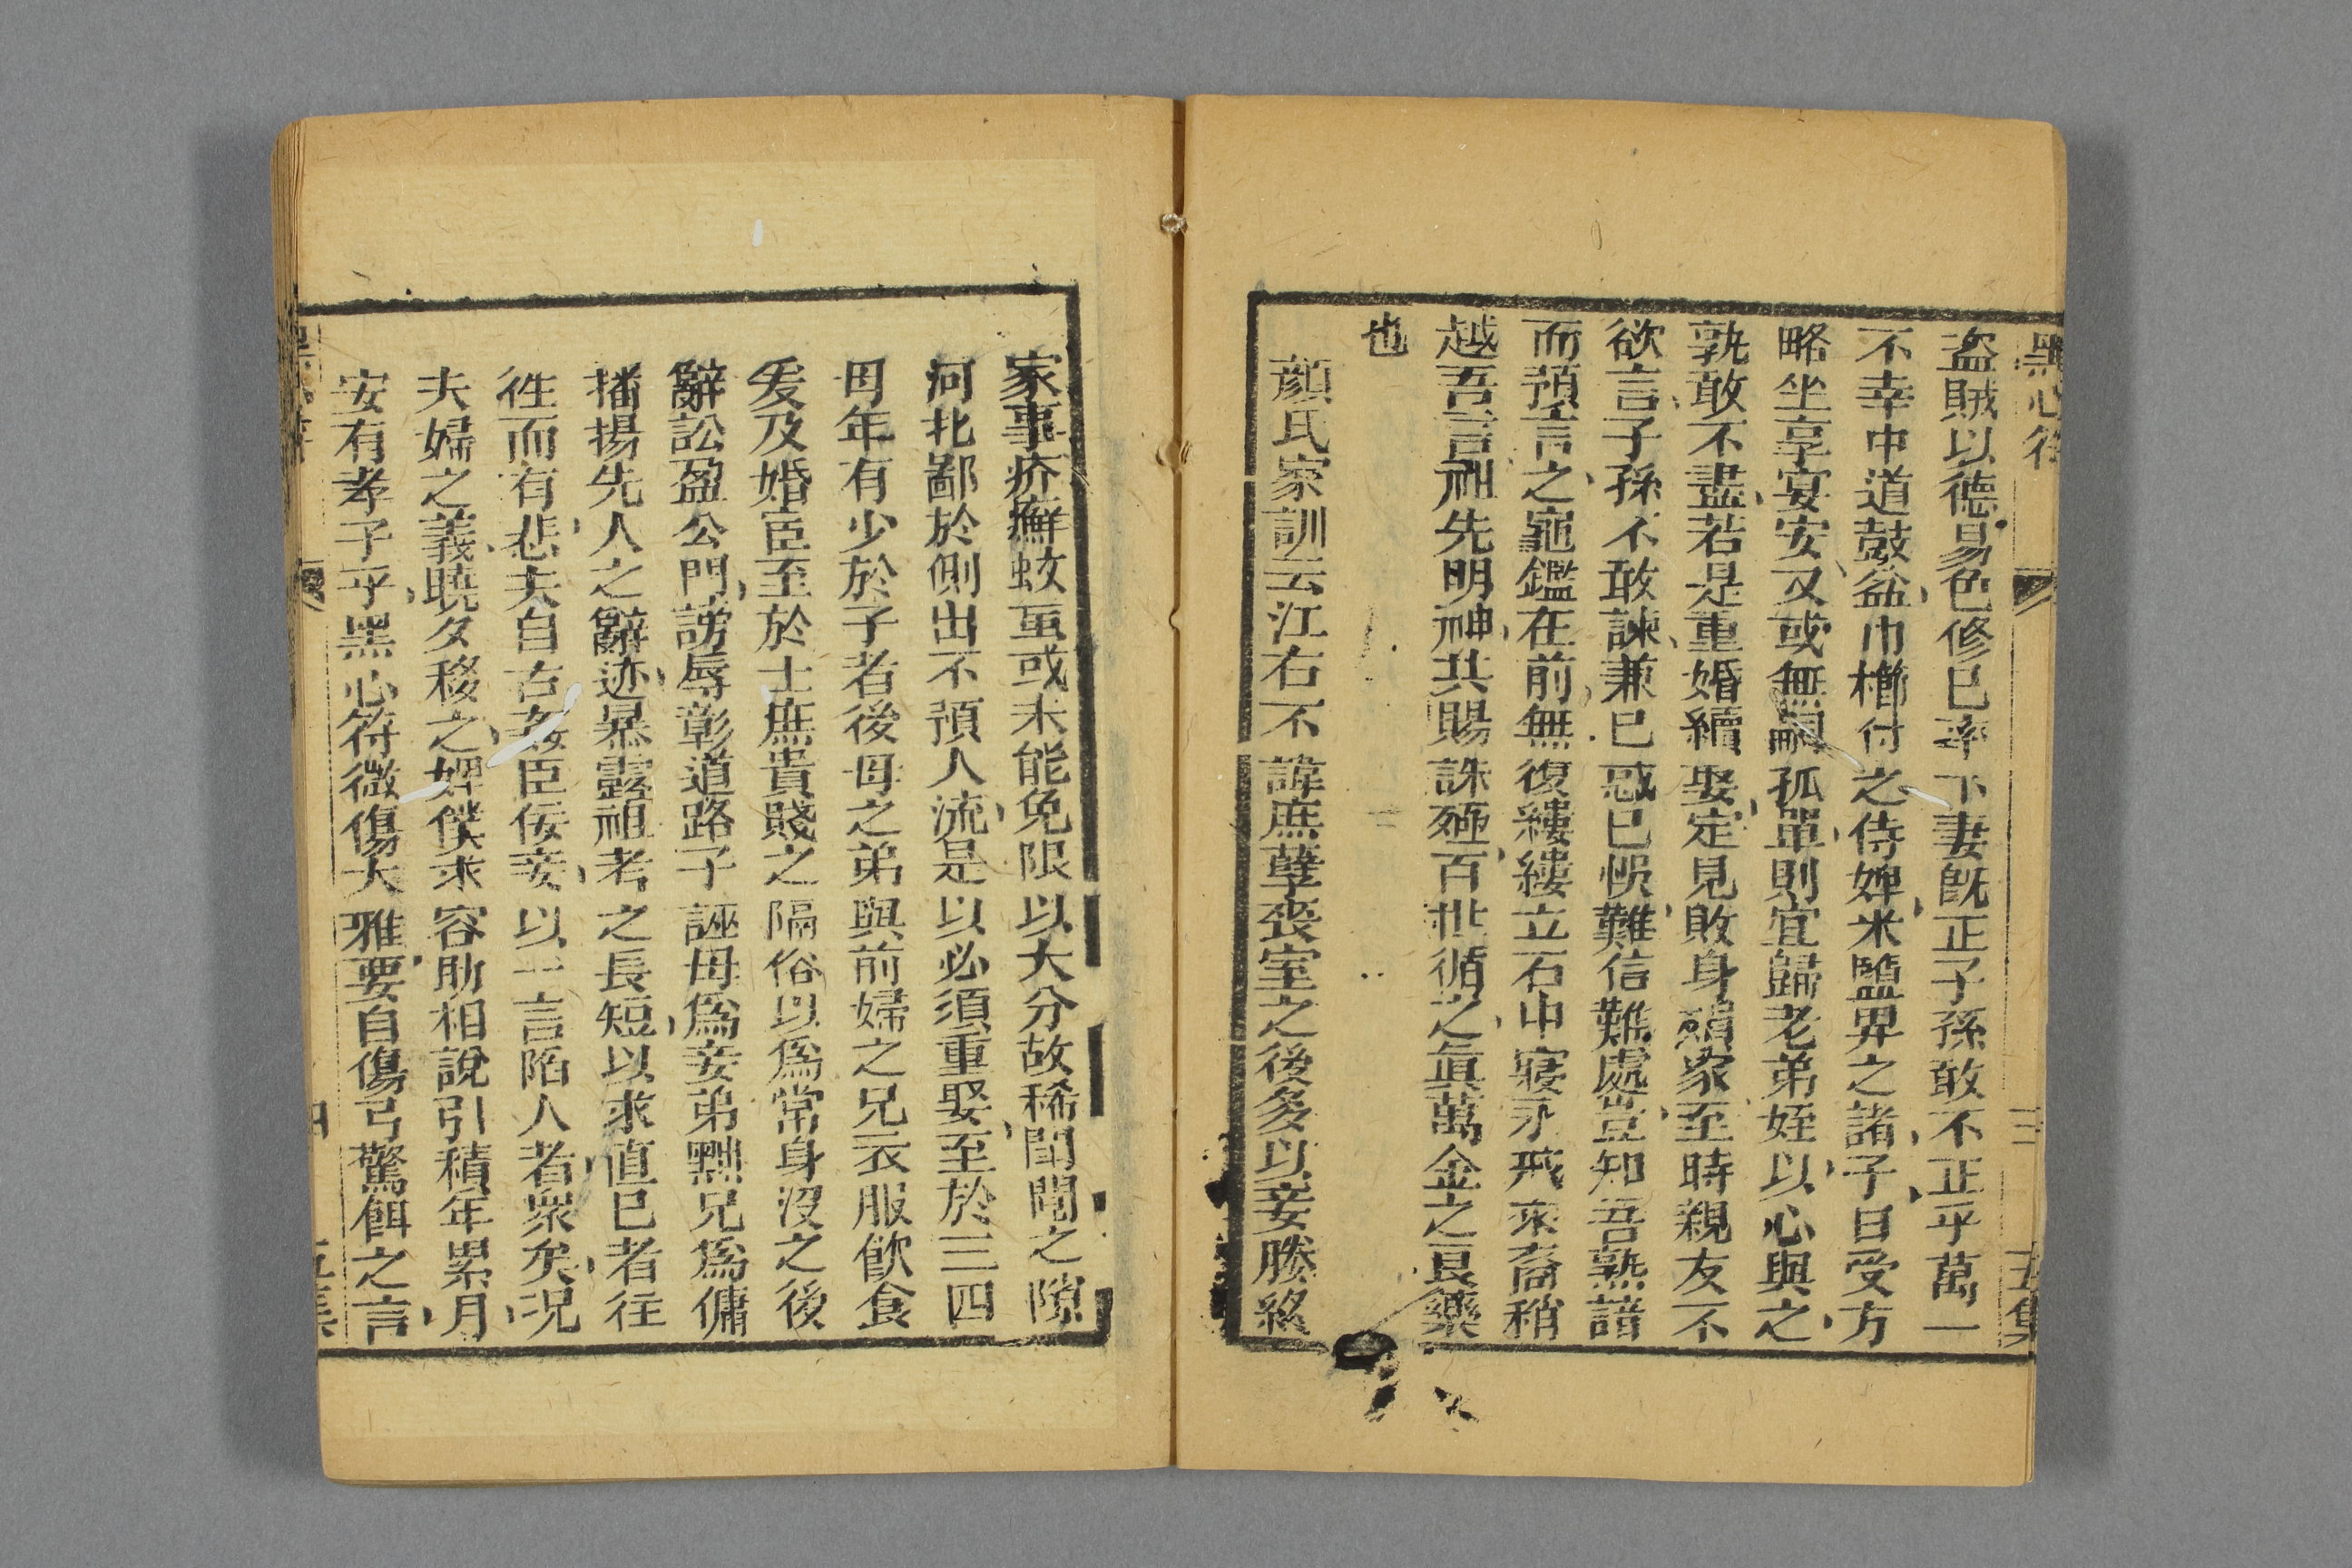 黑心符
三
五集
盗賊以德易色修已率下妻旣正子孫敢不正乎萬一
不幸中道鼓盆巾櫛付之侍婢米鹽畀之諸子日受方
略坐享宴安又或無嗣孤單則宜歸老弟姪以心與之
孰敢不盡若是重婚續娶定見敗身殞家至時親友不
欲言子孫不敢諫兼已惑已悞難信難處豈知吾熟諳
而預言之龜鑑在前無復縷縷立石中寢永戒來裔稍
越吾言祖先明神共賜誅殛百世循之眞萬金之良藥
也
顏氏家訓云江右不諱庶孽喪室之後多以妾媵終
家事疥癬蚊䖟或未能免限以大分故稀閨閫之隙
河北鄙於側出不預人流是以必須重娶至於三四
母年有少於子者後母之弟與前婦之兄衣服飲食
爰及婚宦至於士庶貴賤之隔俗以爲常身沒之後
辭訟盈公門謗辱彰道路子誣母爲妾弟黜兄爲傭
播揚先人之辭迹暴露祖考之長短以求直已者往
徃而有悲夫自古姦臣佞妾以一言陷人者衆矣况
夫婦之義曉夕移之婢僕求容助相說引積年累月
安有孝子乎黑心符微傷大雅要自傷弓驚餌之言
四
五集